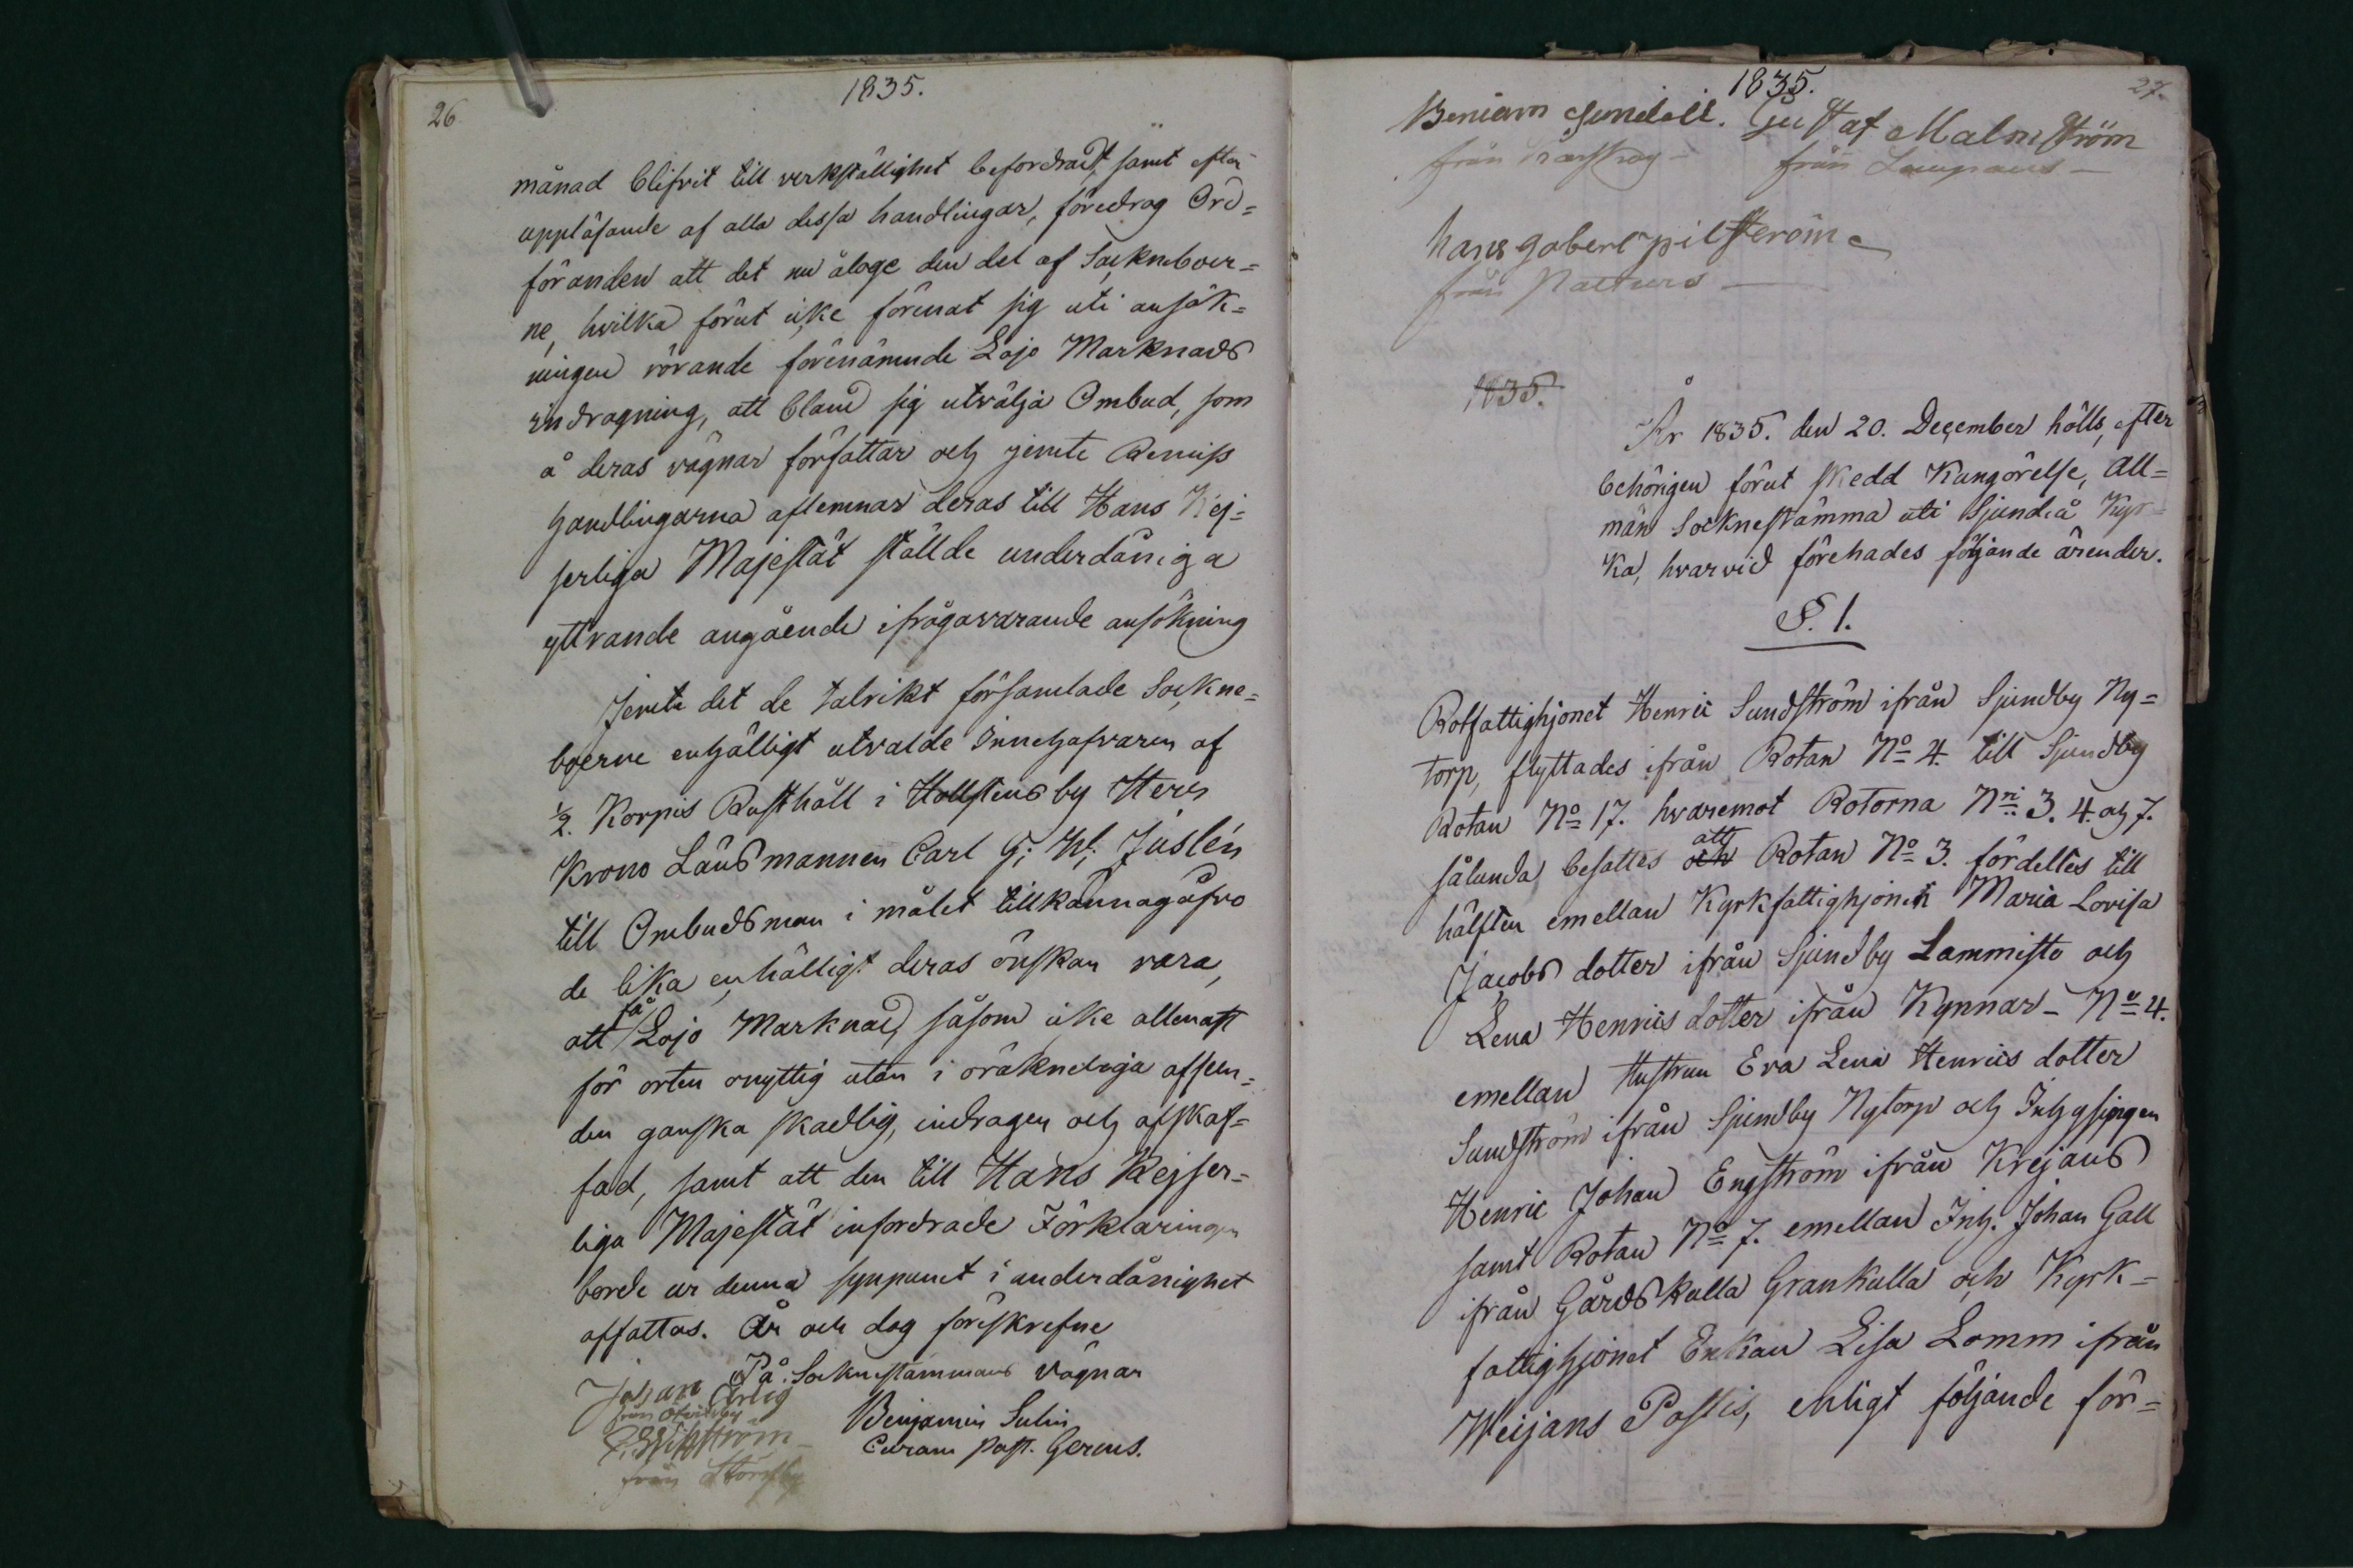 26
1835.
månad blifvit till verkställighet befordradt, samt efter
uppläsande af alla dessa handlingar, föredrog Ord=
föranden att det nu åloge den del af Socknboer=
ne, hvilka förut icke förenat sig uti ansök=
ningen rörande förenämnde Lojo Marknads
indragning, att bland sig utvälja Ombud, som
å deras vägnar författar och jemte Remiss
handlingarna aflemnar deras till Hans Kej=
serliga Majestät ställde underdåniga
yttrande angående ifrågavarande ansökning
Jemte det de talrikt församlade Sockne=
boerne enhälligt utvalde Innehafvaren af
1/2. Korpis Rusthåll i Hollstens by Herr
Krono Länsmannen Carl G: W: Juslén
till Ombudsman i målet tillkännagåfvo
de lika enhälligt deras önskan vara,
att få Lojo Marknad, såsom icke allenast
för orten onyttig utan i oräkneliga afseen=
den ganska skadlig, indragen och afskaf=
fad, samt att den till Hans Kejser=
liga Majestät infordrade Förklaringen
borde ur denna synpunct i underdånighet
affattas. År och dag föreskrefne
På Socknestämmans vägnar
Johan Ärlig
från
Benjamin Sulin
Curam Past. Gerens.
från Störsby
27.
1835.
Gustaf Malmström
från
från
hans
från
1835.
År 1835. den 20. December hölls, efter
behörigen förut skedd Kungörelse, All=
män Socknestämma uti Sjundeå Kyr=
ka, hvarvid förehades följande ärender.
§. 1.
Rotfattighjonet Henric Sundström ifrån Sjundby Ny=
torp, flyttades ifrån Rotan No 4. till Sjundby
Rotan No 17. hvaremot Rotorna Nri 3. 4. och 7.
sålunda besattes och att Rotan No 3. fördeltes till
hälften emellan Kyrkfattighjonen Maria Lovisa
Jacobs dotter ifrån Sjundby Lammisto och
Lena Henrics dotter ifrån Kynnar - No 4.
emellan Hustrun Eva Lena Henrics dotter
Sundström ifrån Sjundby Nytorp och Inhysingen
Henric Johan Engström ifrån Krejans
samt Rotan No 7. emellan Inh. Johan Gall
ifrån Gårdskulla Grankulla och Kyrk=
fattighjonet Enkan Lisa Lomm ifrån
Weijans Passis, enligt följande för=